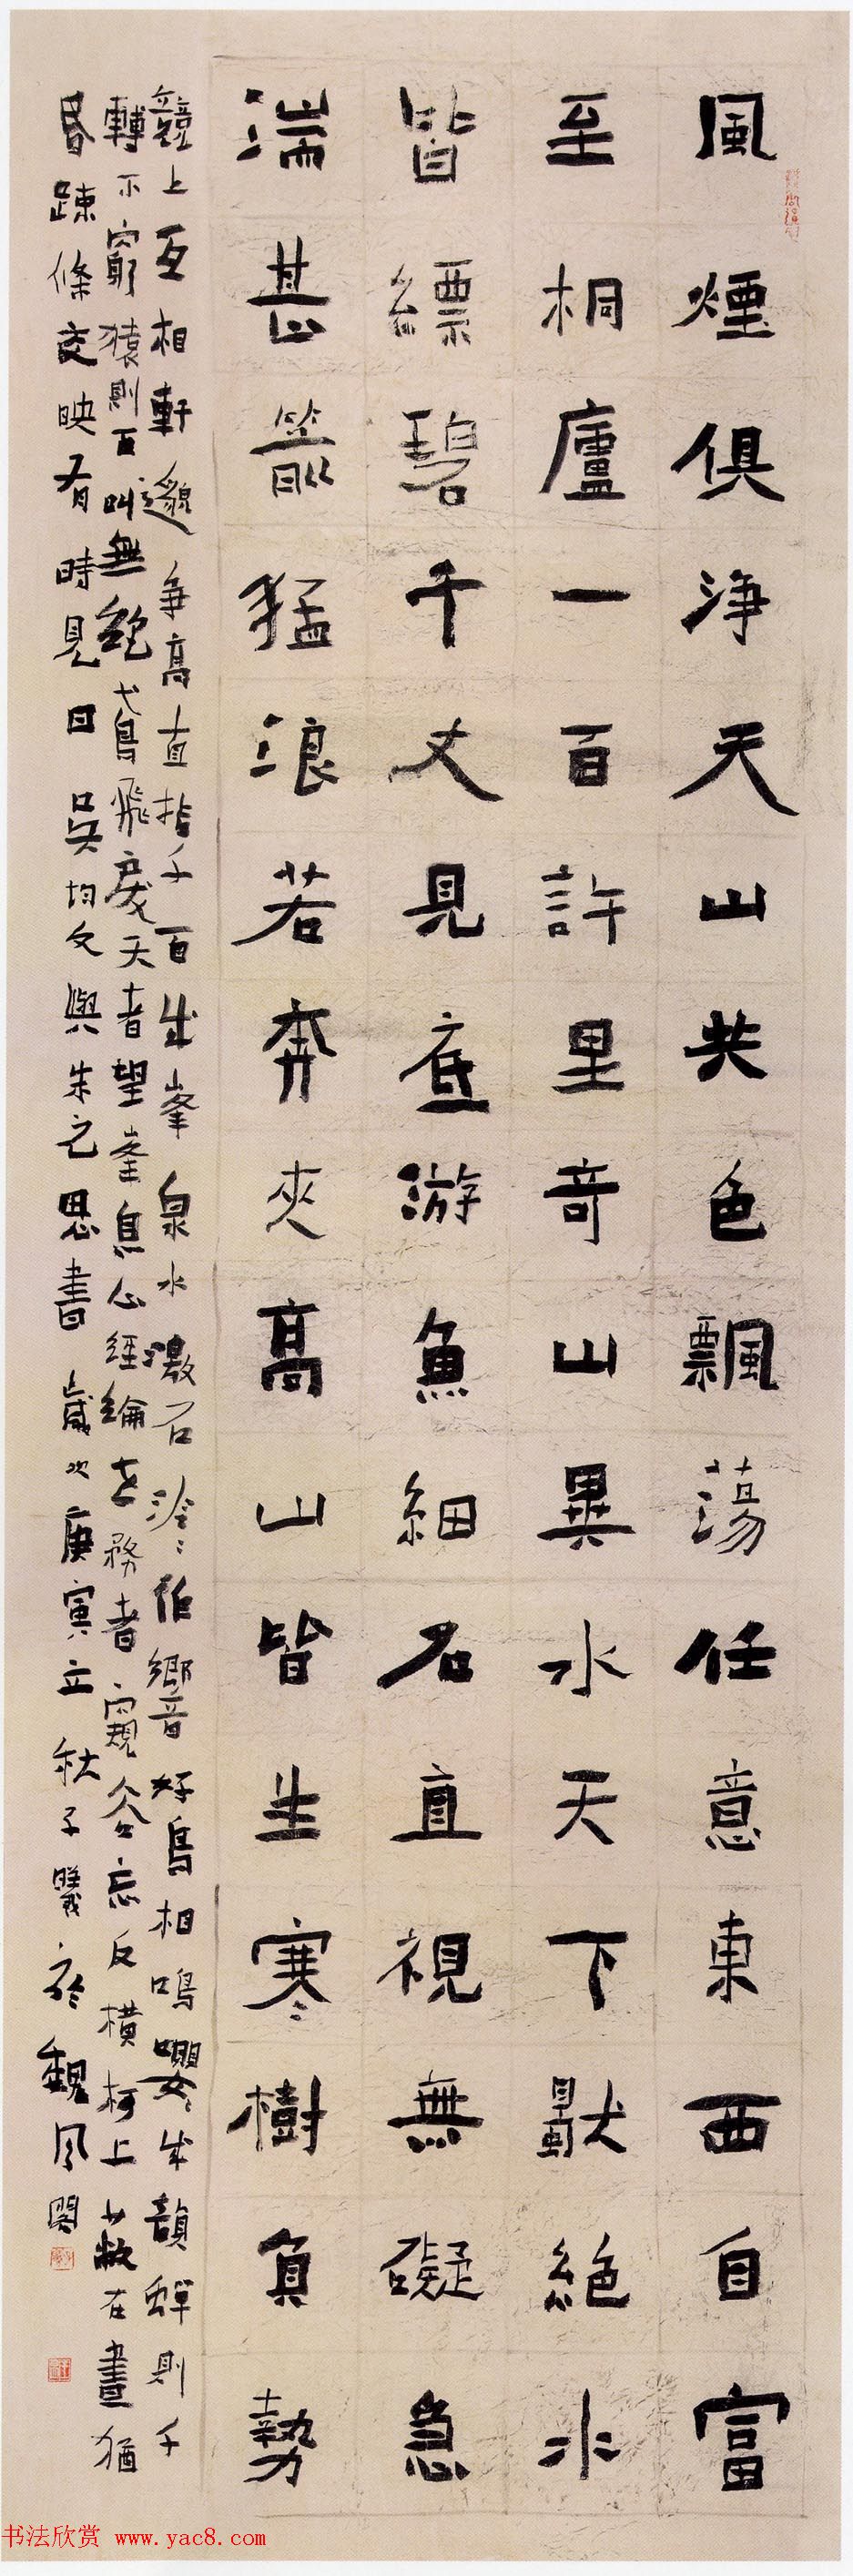 風煙俱浄天山共色飄蕩任意東西自富
至桐廬一百許里奇山異水天下獨絶水
皆縹碧千丈見底游魚細石直視無礙急
湍甚箭猛浪若奔夾高山皆生寒樹負勢
競上互相軒邈争高直指千百成峯泉水激石泠〻作響好鳥相鳴嚶〻成韻蟬則千
轉不窮猿則百叫無絶鳶飛戾天者望峯息心經綸世務者窺谷忘反橫柯上蔽在晝猶
昏疎條交映有時見日 吳均文與朱之思書 歲次庚寅立秋子曦於魏風閣
书法欣赏 www.yac8.com